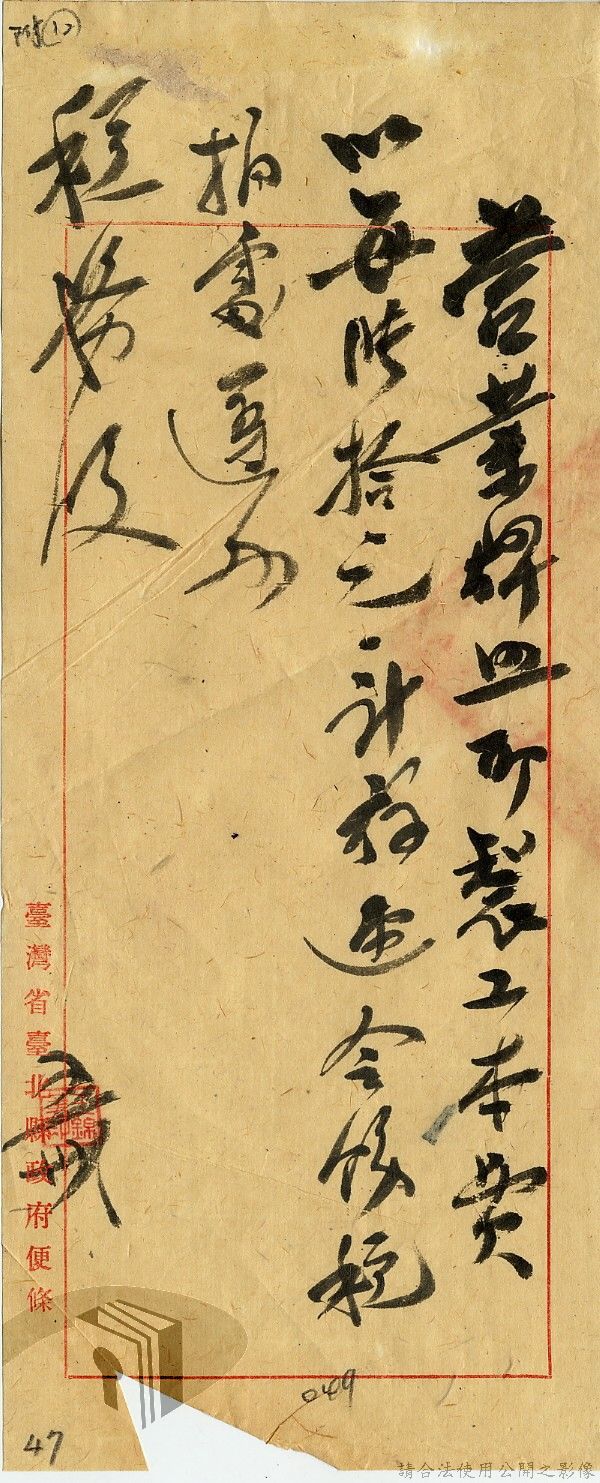 附12
營業牌照所製工本費
以每張拾元計 令飭稅
捐處遵办
臺灣省臺北縣政府便條
049
47
請合法使用公開之影像